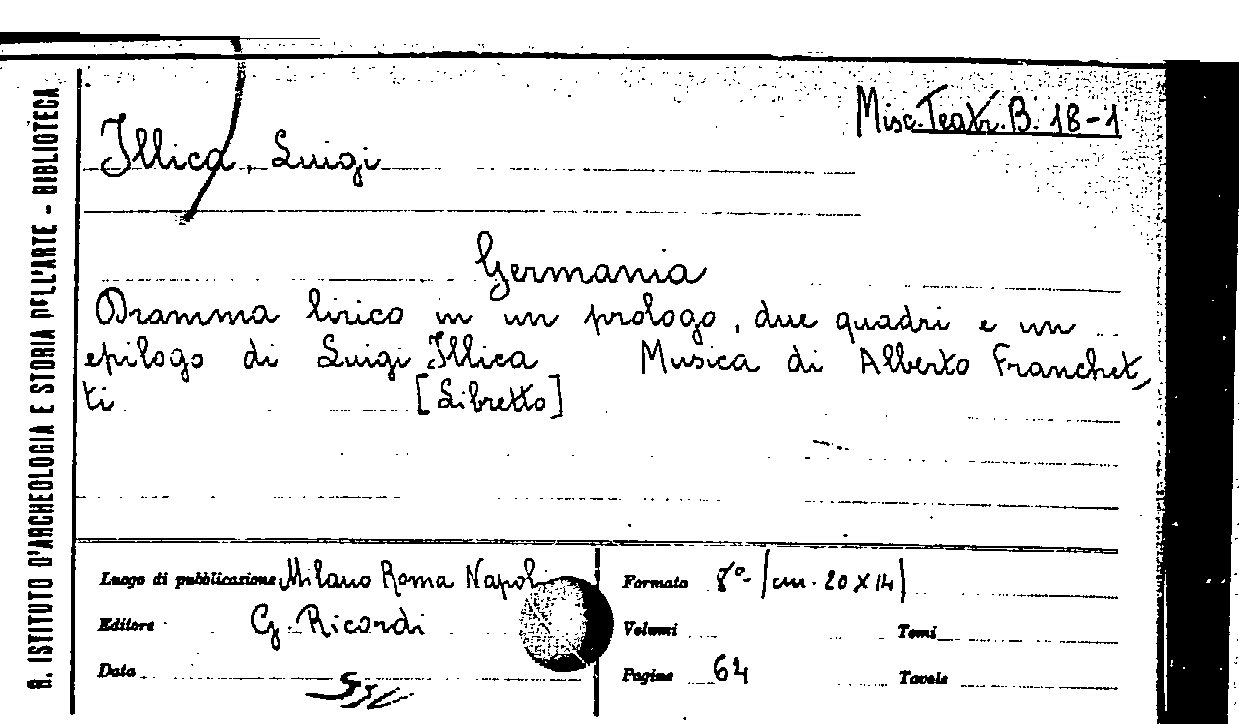 R. ISTITUTO D'ARCHEOLOGIA E STORIA DELL'ARTE - BIBLIOTECA
Misc. Teatr. B. 18-1
Illica, Luigi
Germania
Dramma lirico in un prologo, due quadri e un
epilogo di Luigi Illica Musica di Alberto Franchet,
ti [Libretto]
Luogo di pubblicazione Milano Roma Napoli
Editore G. Ricordi
Data
Formato 8º (cm. 20 x 14)
Volumi Tomi
Pagine 64 Tavole